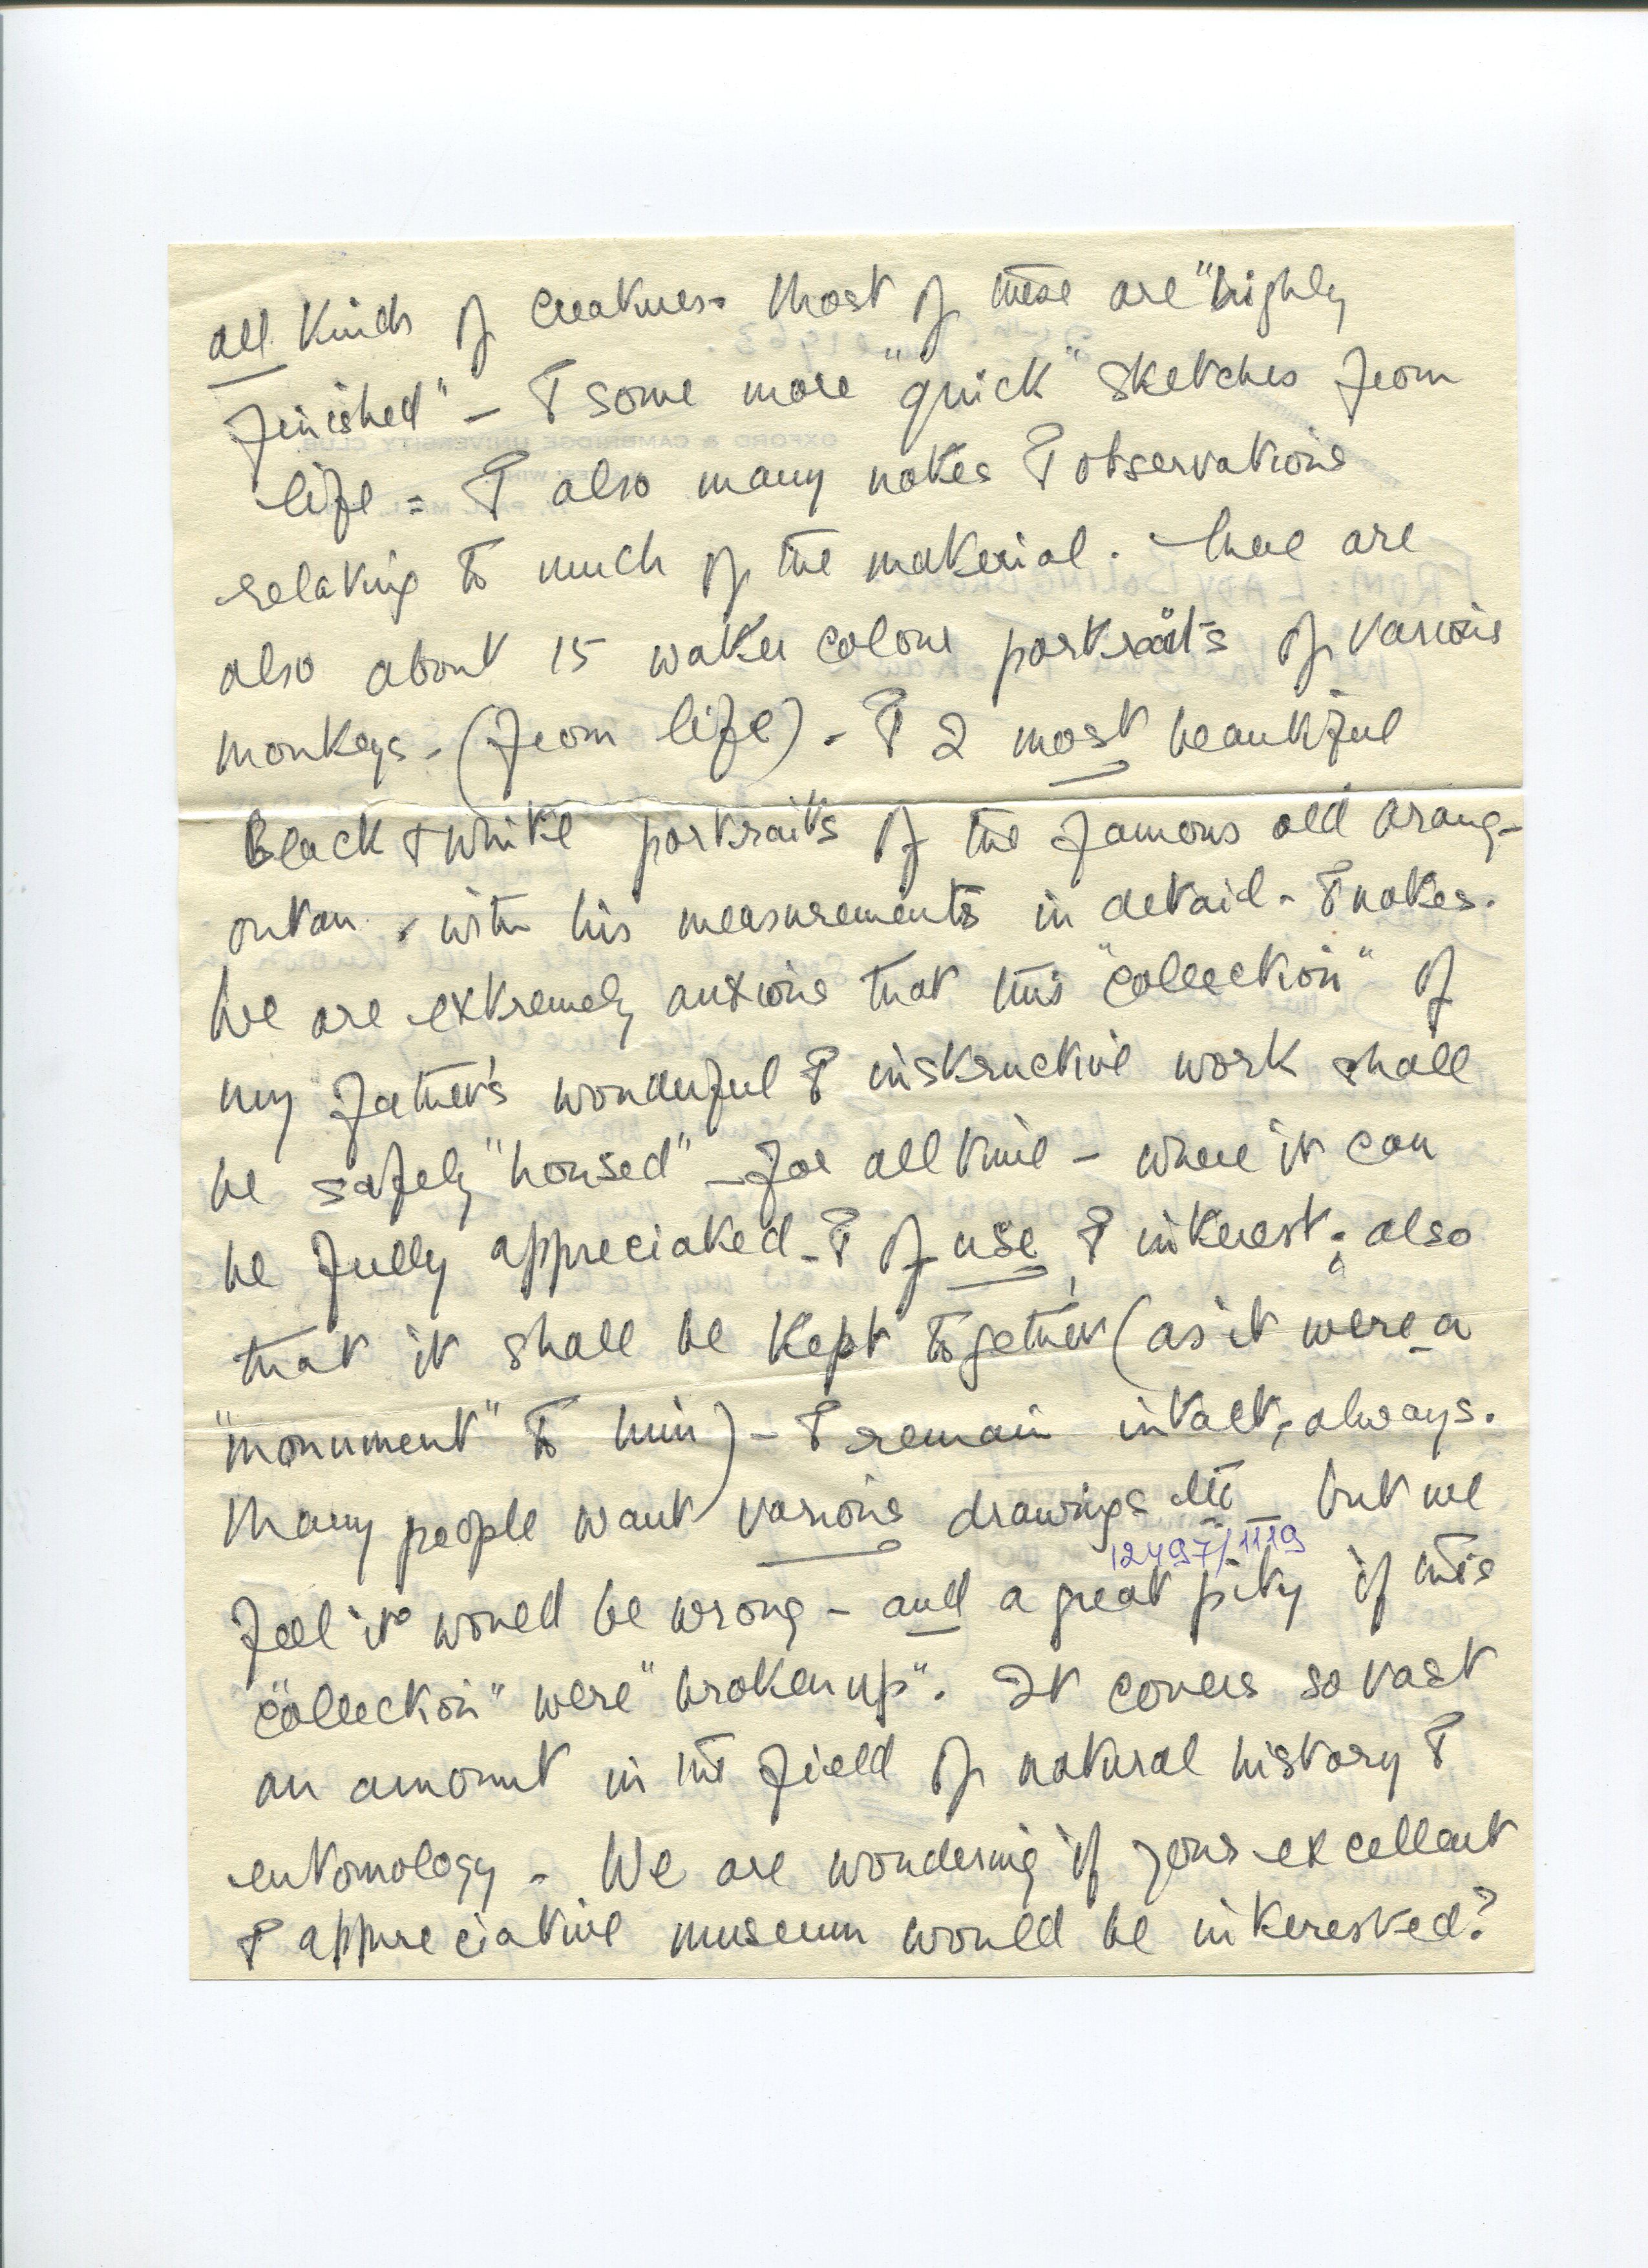 all kinds of creatures. Most of these are "highly
finished" - & some more "quick" sketches from
life = & also many notes & observations
relating to much of the material. There are
also about 15 water colour portraits of various
monkeys - (from life) - & 2 most beautiful
Black & white portraits of the famous old orang-
outan. with his measurements in detail - & notes.
We are extremely anxious that this "collection" of
my father's wonderful & instructive work shall
be safely "housed" - for all time - where it can
be fully appreciated - & of use & interest; also
that it shall be kept together (as it were a
"monument" to him) - & remain intact, always.
Many people want various drawings etc - but we
12497/1119
feel it would be wrong - and a great pity if this
"collection" were "broken up". It covers so vast
an amount in the field of natural history &
entomology - We are wondering if your excellent
& appreciative museum would be interested?